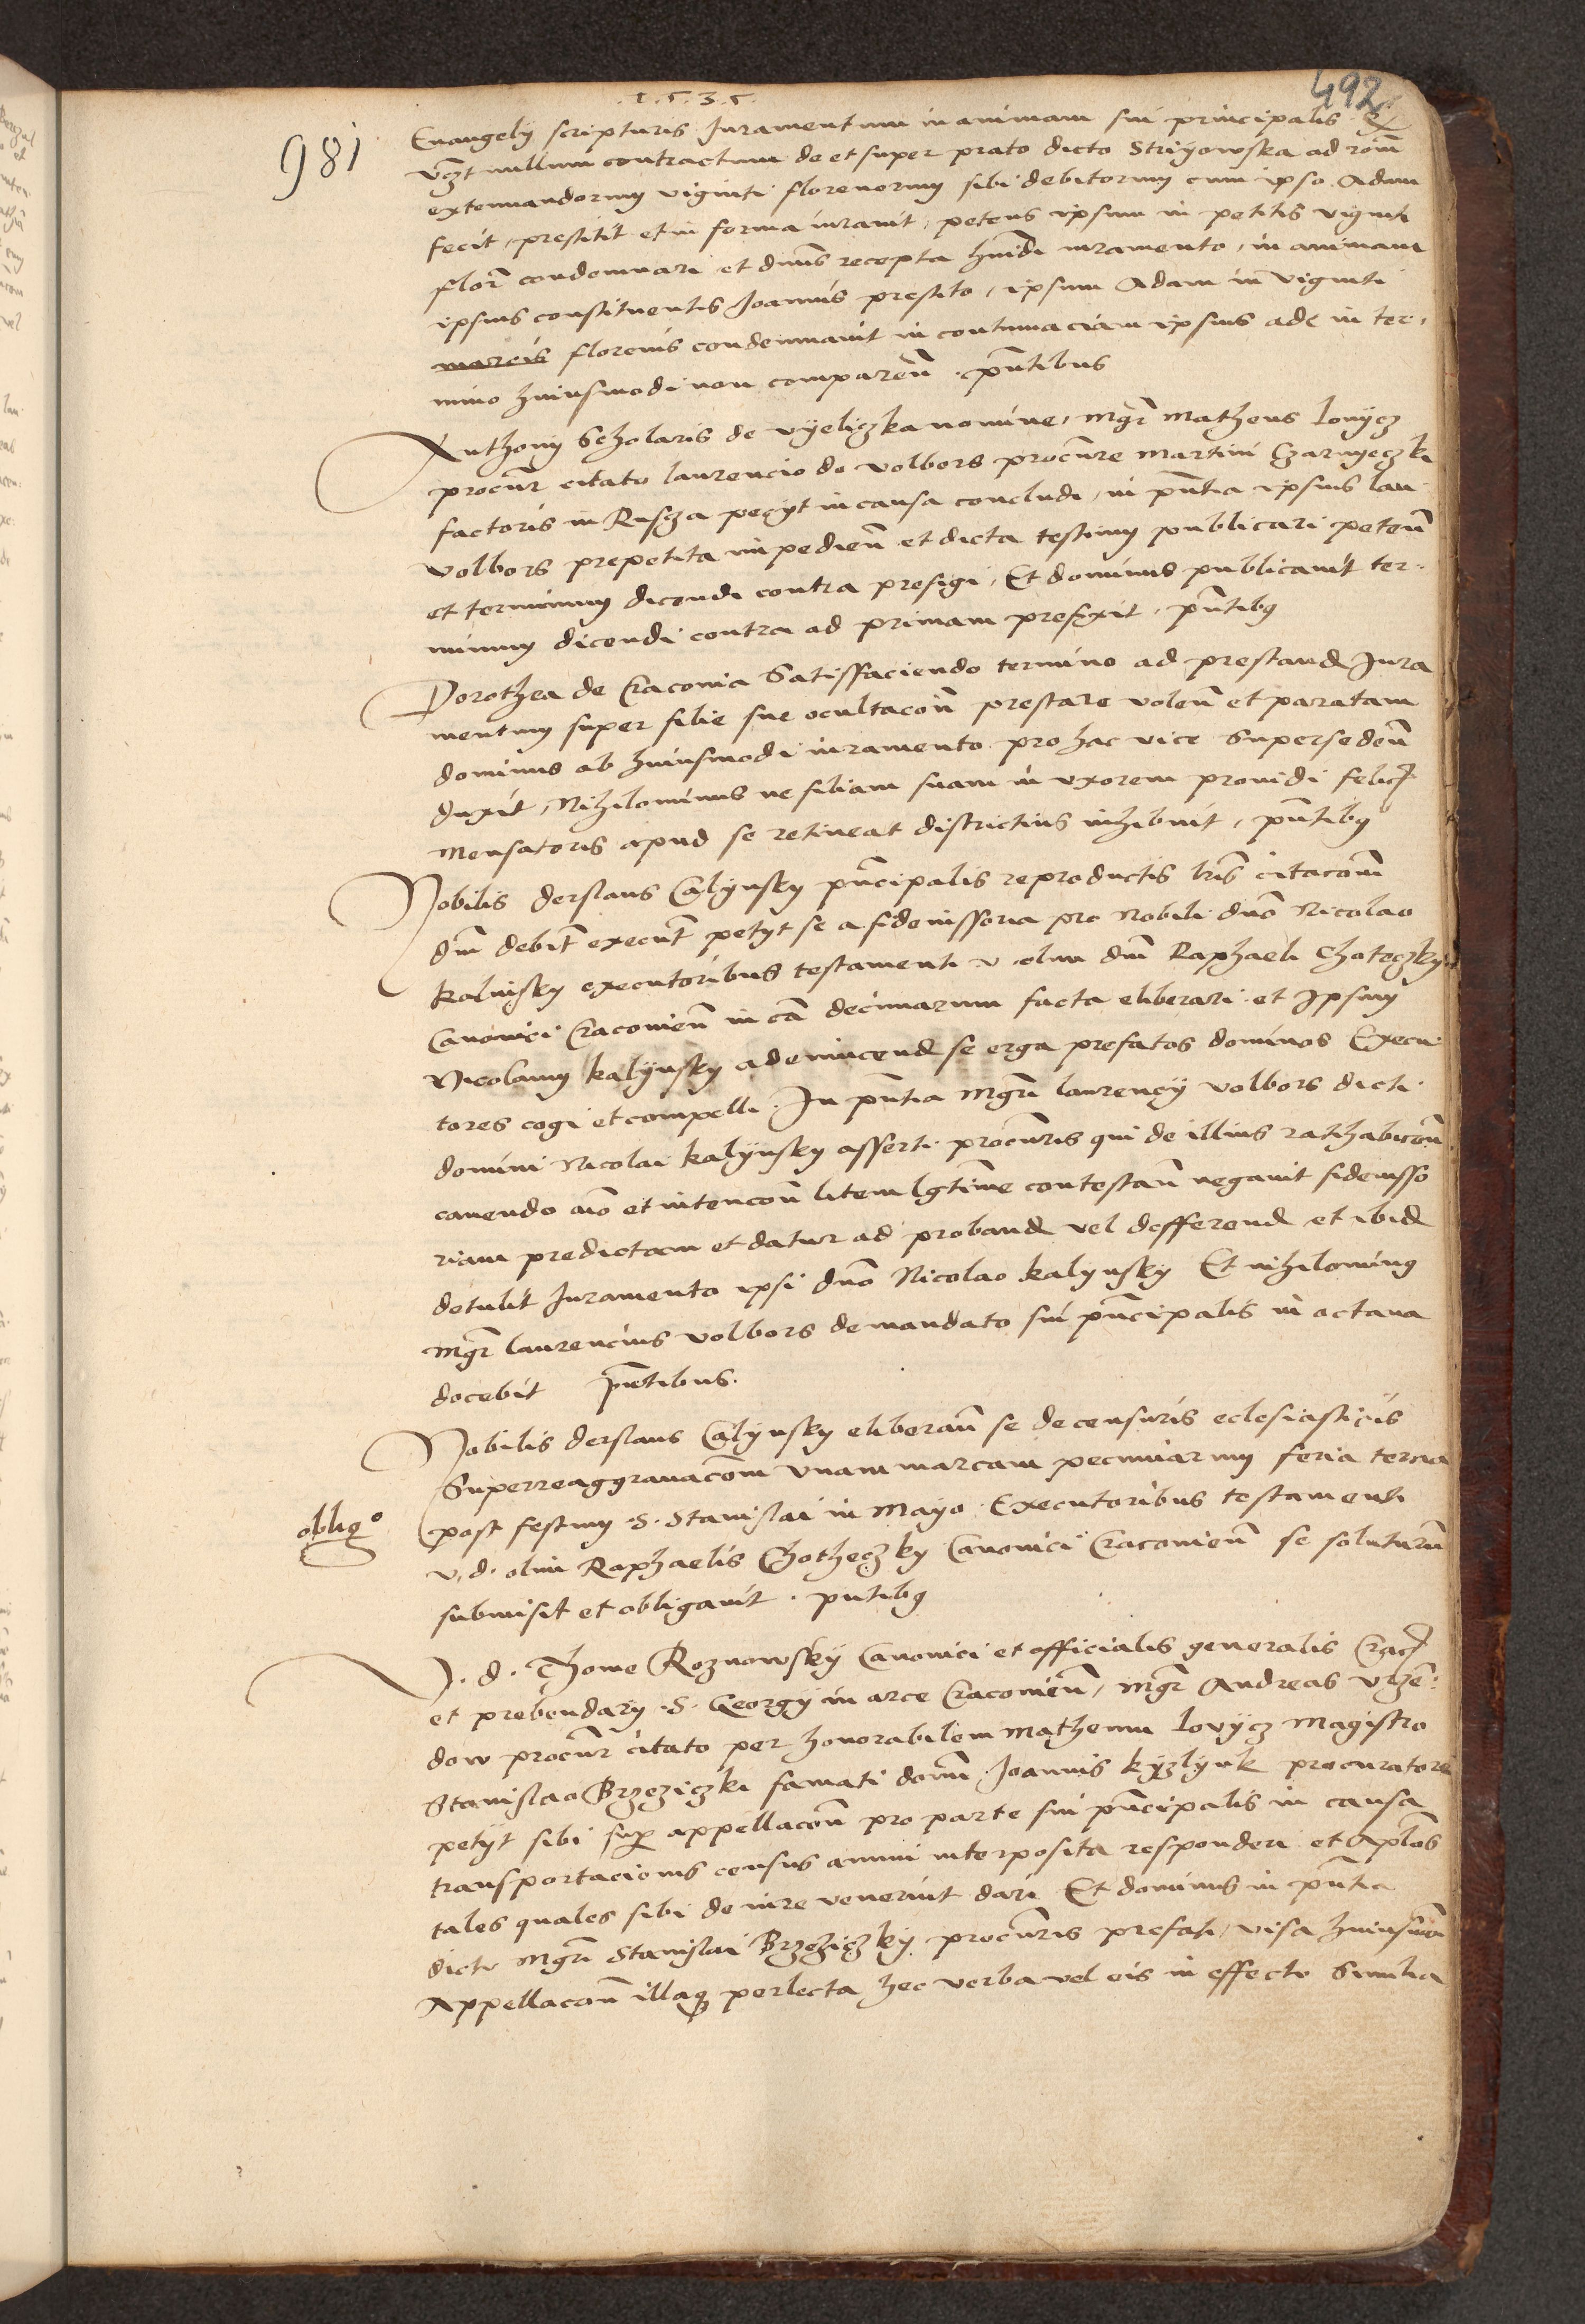 .1.5.3.5.
492
981
Evangely scripturis Juramentum in animam sui principalis
vczt nullum contractum de et super prato dicto Stryyowska ad roīm
extenuandorum viginti florenorum sibi debitorum cum ipso Adam
fecit, prestitit et in forma iuravit, petens ipsum in petitis viginti
flor̄ condemnari et dn̄us recepta hm̄di iuramento, in animam
ipsius constituentis Joannis prestito, ipsum Adam in viginti
marcis florenis condemnavit in contumaciam ipsius ade in ter-
mino huiusmodi non comparen̄. pn̄tibus
Anthony Scholaris de vyeliczka nomine, mgr̄ Matheus lovycz
procur̄ citato laurencio de volbors procur̄re Martini Czarnyeczki
factoris in Rusza petyt in causa concludi, in pn̄tia ipsius lau
volbors prepetita impedien̄ et dicta testium publicari peten̄
et terminum dicendi contra prefigi, Et dominus publicavit ter-
minum dicendi contra ad primam prefixit, pn̄tibus
Dorothea de Craconia Satisfaciendo termino ad prestand Jura
mentum super filie sue ocultacōn prestare volen̄ et paratam
dominus ab huiusmodi iuramento pro hac vice Superseden̄
duxit, Nihilominus ne filiam suam in uxorem providi felic
Mensatoris apud se retineat districtius inhibuit, pn̄tibus
Nobilis derslaus Calynsky pn̄cipalis reproductis lr̄is citacom̄
dm̄ debit̄ execut̄ petyt se a fideiussoria pro Nobili dn̄o Nicolao
kalinsky executoribus testamenti v olim dm̄ Raphaeli Choteczky
Canonici Cracovien̄ in cā decimarum facta eliberari et ipsum
Nicolaum kalynsky ad evincend se erga prefatos dominos Execu-
tores cogi et compelli. In pn̄tia Mgr̄i laurency volbors dicti
domini Nicolai kalynsky asserti procur̄ris qui de illius ratihabicōn
cavendo aīo et intencōn litem lgtīme contestan̄ negavit fideiusso
riam predictam et datur ad proband vel defferend et ibid
detulit Juramento ipsi dn̄o Nicolao kalynsky Et nihilominus
mgr̄ laurencius volbors de mandato sui pn̄cipalis in octava
docebit pn̄tibus.
Nobilis derslaus Calynsky eliberan̄ se de censuris eclesiasticis
Superreaggravacōm unam marcam pecuniarum feria tercia
obligo
post festum S. Stanislai in Mayo Executoribus testamenti
v. d. olim Raphaelis Chotheczky Canonici Cracovien̄ se soluturum
submisit et obligavit. pn̄tibus
V. d. Thome Roznowsky Canonici et officialis generalis Crac
et prebendary S. Georgy in arce Cracovien̄, mgr̄ Andreas vrzen-
dow procur̄ citato per honorabilem Matheum lovycz Magistro
Stanislao Brzeziczki famati domī Joannis kyzlynk procuratore
petyt sibi sup appellacōn pro parte sui pn̄cipalis in causa
transportacionis census annui interposita responderi et aplōs
tales quales sibi de iure venerint dari Et dominus in pn̄tia
dicti Mgr̄i Stanislai Brzeziczky procur̄ris prefati, visa huiusmōi
Appellacōn illaque perlecta hec verba vel eis in effectu Similia